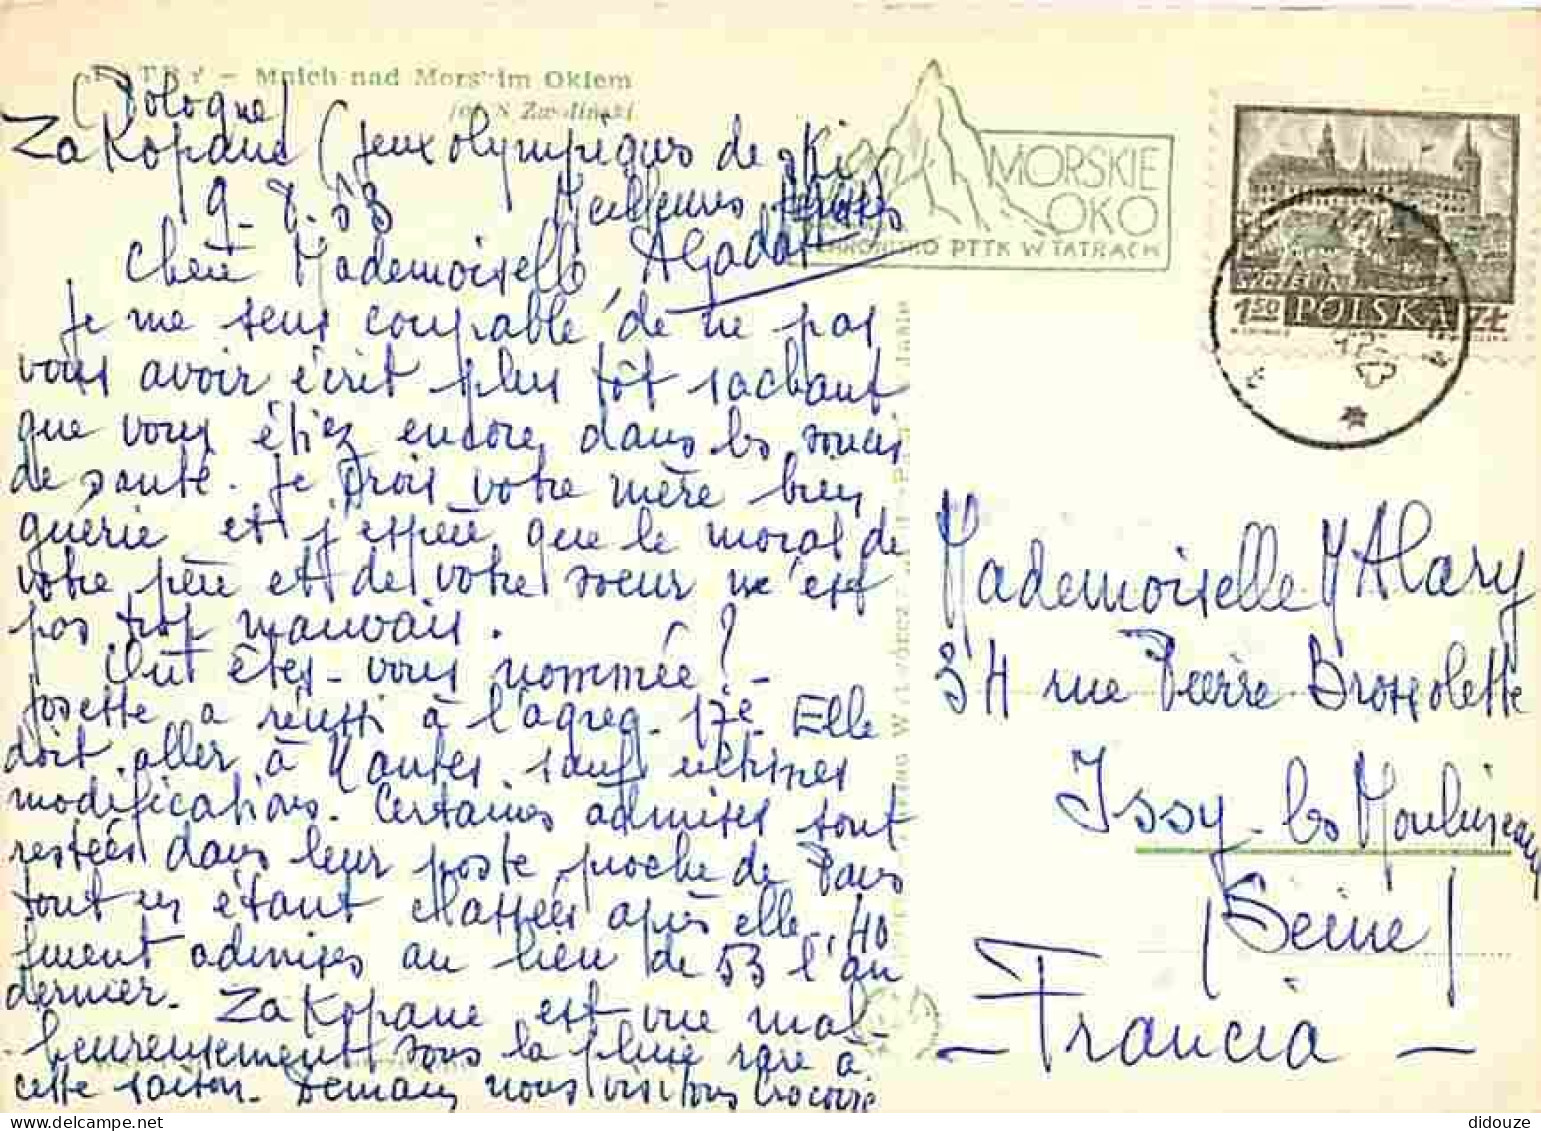 TATRY – Mnich nad Morskim Okiem
fot. S. Zwoliński
(Pologne)
Zakopane (jeux olympiques de ski
9. 8. 63 Meilleures
Chère Mademoiselle,
Je me sens coupable de ne pas
vous avoir écrit plus tôt sachant
que vous étiez encore dans les soucis
de santé. Je crois votre mère bien
guérie et j'espère que le moral de
votre père et de votre soeur n'est
pas trop mauvais.
Où êtes-vous nommée ? -
Josette a réussi à l'agreg. 17e. Elle
doit aller à Nantes sauf ultimes
modifications. Certaines admises sont
restées dans leur poste proche de Paris
tout en étant classées après elle. 40
furent admises au lieu de 53 l'an
dernier. Zakopane est vue mal-
heureusement sous la pluie rare à
cette saison. Demain nous visitons Cracovie
MORSKIE
OKO
SCHRONISKO PTTK W TATRACH
1,50 POLSKA ZŁ
Mademoiselle M Alary
34 rue Pierre Brossolette
Issy-les-Moulineaux
(Seine)
– Francia –
didouze